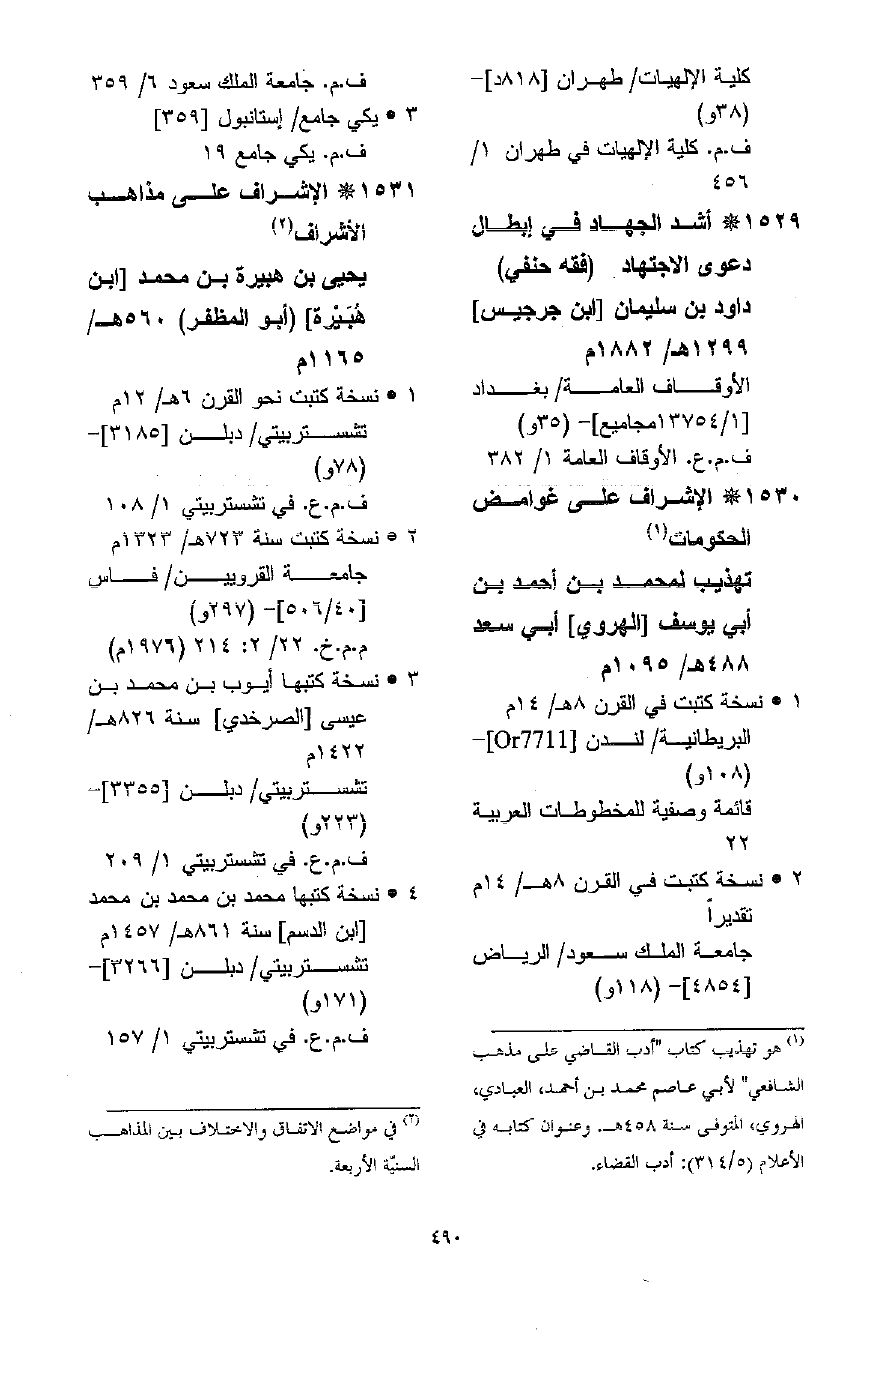 كلية الإلهيات/ طهران [٨١٨د]-
(٣٨و)
ف.م. كلية الإلهيات في طهران ١/
٤٥٦
١٥٢٩* أشد الجهاد في إبطال
دعوى الاجتهاد (فقه حنفي)
داود بن سليمان [ابن جرجيس]
١٢٩٩هـ/ ١٨٨٢م
الأوقاف العامة/ بغداد
[١٣٧٥٤/١مجاميع]- (٣٥و)
ف.م.ع. الأوقاف العامة ١/ ٣٨٢
١٥٣٠* الإشراف على غوامض
الحكومات(١)
تهذيب لمحمد بن أحمد بن
أبي يوسف [الهروي] أبي سعد
٤٨٨هـ/ ١٠٩٥م
١ • نسخة كتبت في القرن ٨هـ/ ١٤م
البريطانية/ لندن [Or7711]-
(١٠٨و)
قائمة وصفية للمخطوطات العربية
٢٢
٢ • نسخة كتبت في القرن ٨هـ/ ١٤م
تقديراً
جامعة الملك سعود/ الرياض
[٤٨٥٤]- (١١٨و)
(١) هو تهذيب كتاب "أدب القاضي على مذهب
الشافعي" لأبي عاصم محمد بن أحمد، العبادي،
الهروي، المتوفى سنة ٤٥٨هـ. وعنوان كتابه في
الأعلام (٣١٤/٥): أدب القضاء.
ف.م. جامعة الملك سعود ٦/ ٣٥٩
٣ • يكي جامع/ إستانبول [٣٥٩]
ف.م. يكي جامع ١٩
١٥٣١* الإشراف على مذاهب
الأشراف(٢)
يحيى بن هبيرة بن محمد [ابن
هُبَيْرة] (أبو المظفر) ٥٦٠هـ/
١١٦٥م
١ • نسخة كتبت نحو القرن ٦هـ/ ١٢م
تشستربيتي/ دبلن [٣١٨٥]-
(٧٨و)
ف.م.ع. في تشستربيتي ١/ ١٠٨
٢ • نسخة كتبت سنة ٧٢٣هـ/ ١٣٢٣م
جامعة القرويين/ فاس
[٥٠٦/٤٠]- (٢٩٧و)
م.م.خ. ٢٢/ ٢: ٢١٤ (١٩٧٦م)
٣ • نسخة كتبها أيوب بن محمد بن
عيسى [الصرخدي] سنة ٨٢٦هـ/
١٤٢٢م
تشستربيتي/ دبلن [٣٣٥٥]-
(٢٢٣و)
ف.م.ع. في تشستربيتي ١/ ٢٠٩
٤ • نسخة كتبها محمد بن محمد بن محمد
[ابن الدسم] سنة ٨٦١هـ/ ١٤٥٧م
تشستربيتي/ دبلن [٣٢٦٦]-
(١٧١و)
ف.م.ع. في تشستربيتي ١/ ١٥٧
(٢) في مواضع الاتفاق والاختلاف بين المذاهب
السنيّة الأربعة.
٤٩٠